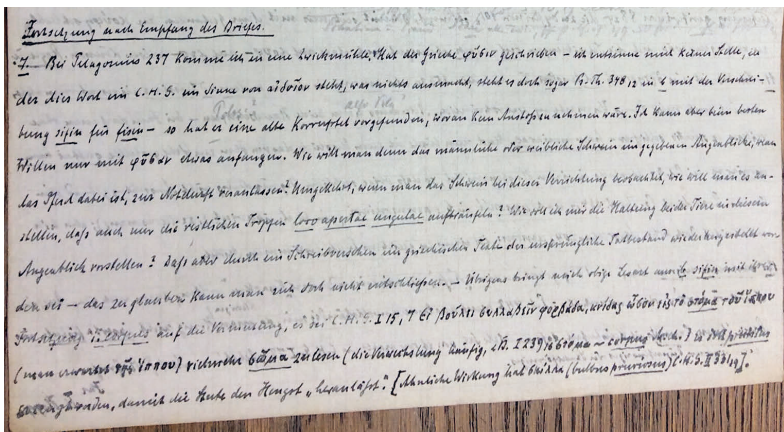 Fortsetzung nach Empfang des Briefes.
7. Bei Pelagonius 237 komme ich in eine Zwickmühle. Hat der Grieche φύσιν geschrieben – ich entsinne mich keiner Stelle, in
der dies Wort im C.H.G. im Sinne von αἰδοῖον steht, was nichts ausmacht, steht es doch sogar Pr. Th. 348,12 in b mit der Verschrei-
bung sifin für fisin – so hat er eine alte Korruptel vorgefunden, woran kein Anstoss zu nehmen wäre. Ich kann aber beim besten
Willen nur mit φύσιν etwas anfangen. Wie will man denn das männliche oder weibliche Schwein im gegebenen Augenblicke, wenn
das Pferd dabei ist, zur Notdurft veranlassen? Umgekehrt, wenn man das Schwein bei dieser Verrichtung beobachtet, wie will man es an-
stellen, daß auch nur die restlichen Tropfen loco apertae ungulae aufträufeln? Wie soll ich mir die Haltung beider Tiere in diesem
Augenblick vorstellen? Daß aber durch ein Schreibversehen im griechischen Text der ursprüngliche Tatbestand wiederhergestellt wor-
den sei – das zu glauben kann man sich doch nicht entschließen. – Übrigens bringt mich obige Lesart
auf die Vermutung, es sei C.H.G. I 15,7 Εἰ βούλει συλλαβεῖν φορβάδα, εἰς τὸ στόμα τοῦ ἵππου
(man erwartet τῆς ἵππου) vielmehr σῶμα zu lesen (die Verwechslung häufig, I 239 στόμα ~ corpus
werden, damit die Stute den Hengst „heranläßt“. [Ähnliche Wirkung hat σκίλλα (bulbus pruriosus) C.H.G. II